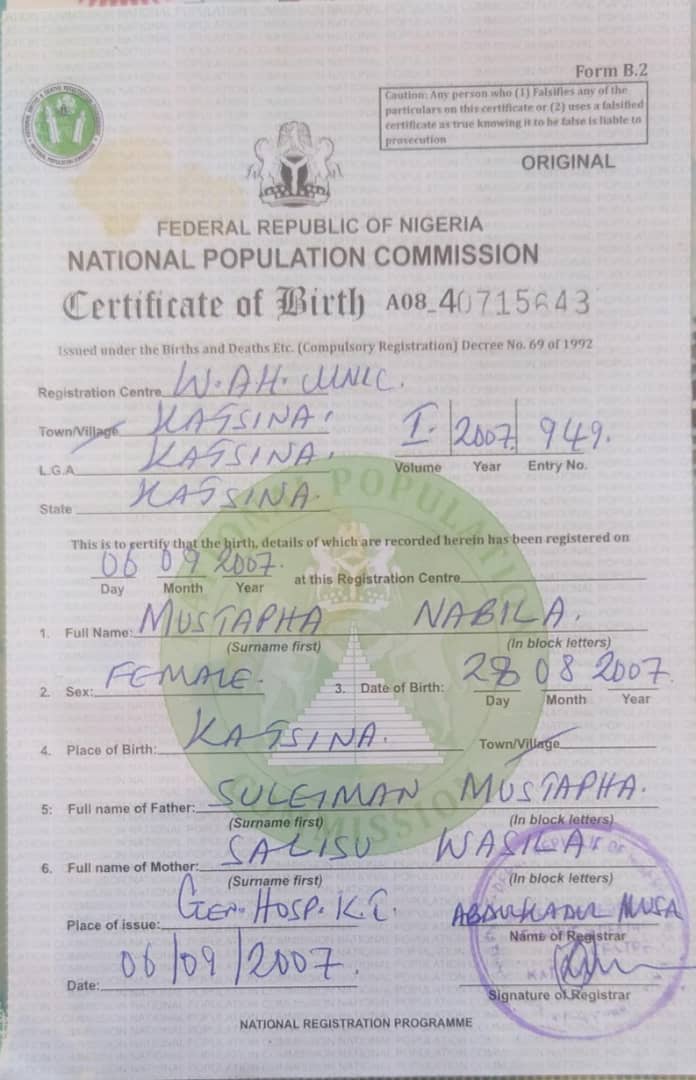 Form B.2
Caution: Any person who (1) Falsifies any of the
particulars on this certificate or (2) uses a falsified
certificate as true knowing it to be false is liable to
prosecution
ORIGINAL
FEDERAL REPUBLIC OF NIGERIA
NATIONAL POPULATION COMMISSION
Certificate of Birth A08_40715643
Issued under the Births and Deaths Etc. (Compulsory Registration) Decree No. 69 of 1992
Registration Centre W.A.H. CLINIC.
Town/Village KATSINA.
I. 2007 949.
L.G.A KATSINA.
Volume Year Entry No.
State KATSINA.
This is to certify that the birth, details of which are recorded herein has been registered on
06 09 2007. at this Registration Centre
Day Month Year
1. Full Name: MUSTAPHA NABILA.
(Surname first) (In block letters)
2. Sex: FEMALE. 3. Date of Birth: 28 08 2007.
Day Month Year
4. Place of Birth: KATSINA. Town/Village
5: Full name of Father: SULEIMAN MUSTAPHA.
(Surname first) (In block letters)
6. Full name of Mother: SALISU WASILA
(Surname first) (In block letters)
Place of issue: GEN. HOSP. K.T. MUSA
Name of Registrar
Date: 06/09/2007.
Signature of Registrar
NATIONAL REGISTRATION PROGRAMME